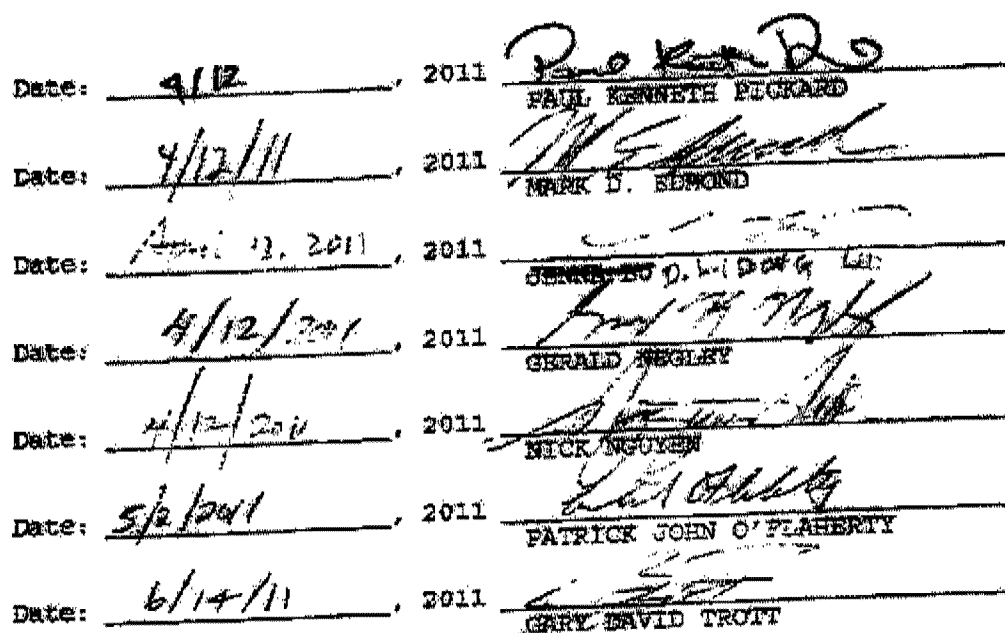 Date: 4/12, 2011
PAUL KENNETH PICKARD
Date: 4/12/11, 2011
MARK D. EDMOND
Date: April 12, 2011, 2011
D. LIDONG LU
Date: 4/12/2011, 2011
GERALD NEGLEY
Date: 4/12/2011, 2011
NICK NGUYEN
Date: 5/2/2011, 2011
PATRICK JOHN O'FLAHERTY
Date: 6/14/11, 2011
GARY DAVID TROTT